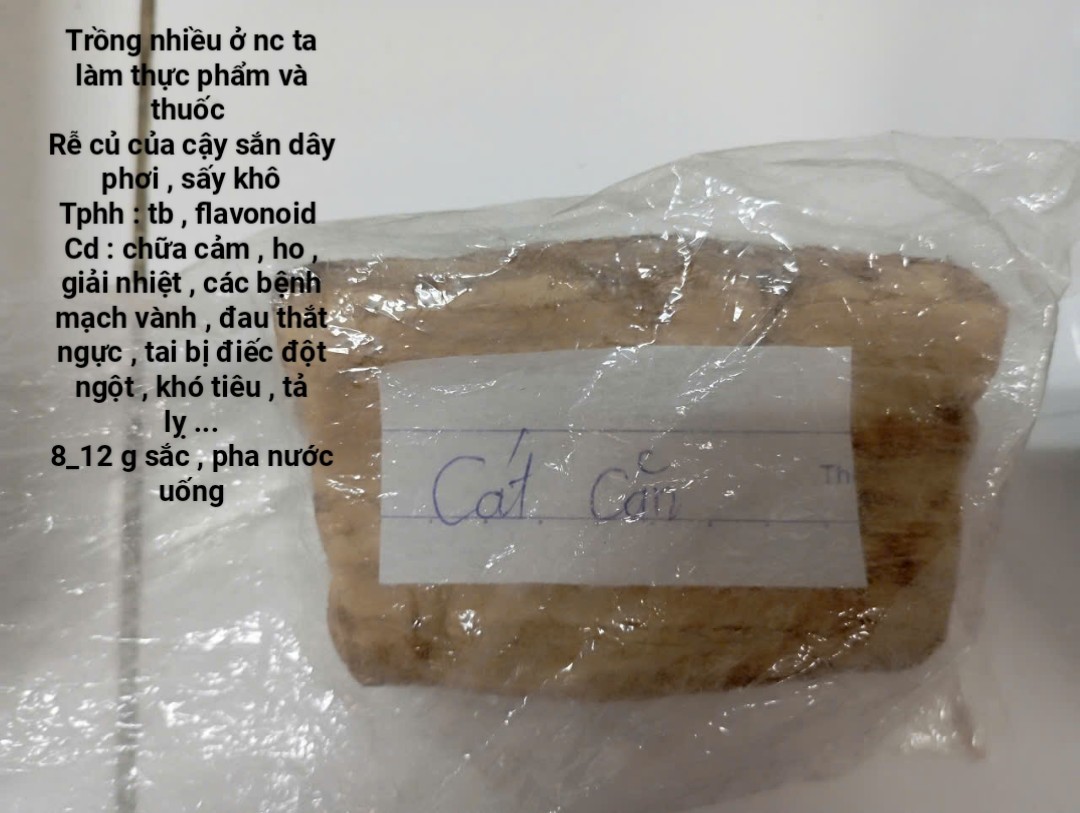 Trồng nhiều ở nc ta
làm thực phẩm và
thuốc
Rễ củ của cậy sắn dây
phơi , sấy khô
Tphh : tb , flavonoid
Cd : chữa cảm , ho ,
giải nhiệt , các bệnh
mạch vành , đau thắt
ngực , tai bị điếc đột
ngột , khó tiêu , tả
lỵ ...
8_12 g sắc , pha nước
uống
Cát Căn
Th